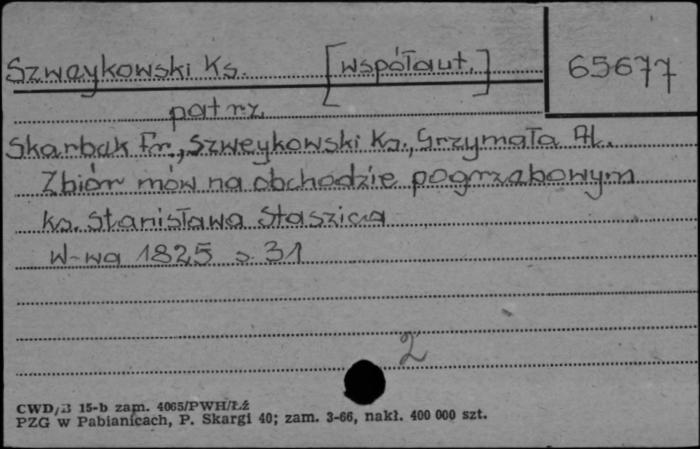 Szweykowski Ks. [współaut.] 65677
patrz
Skarbek Fr., Szweykowski Ks., Grzymała Al.
Zbiór mów na obchodzie pogrzebowym
ks. Stanisława Staszica
W-wa 1825 s. 31
2
CWD/B 15-b zam. 4065/PWH/Łź
PZG w Pabianicach, P. Skargi 40; zam. 3-66, nakł. 400 000 szt.